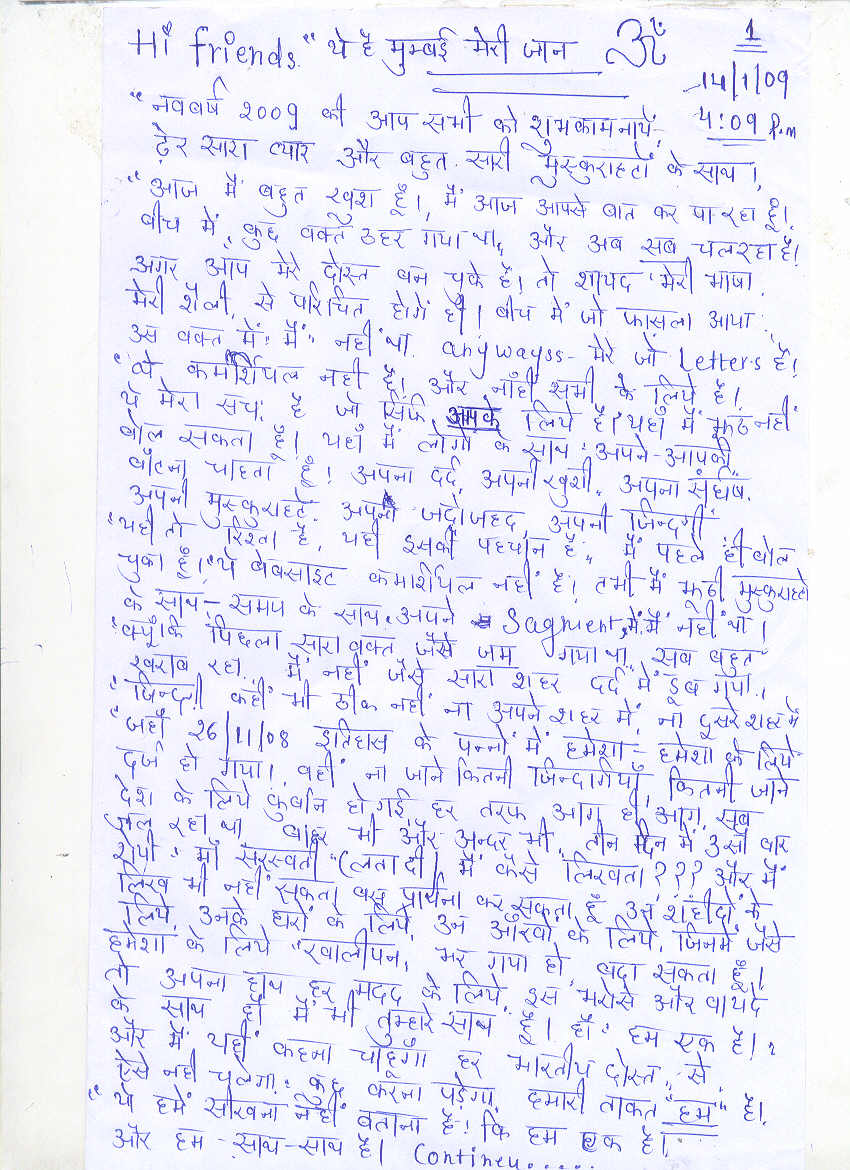 Hi friends. "ये है मुम्बई मेरी जान ॐ 1
14/1/09
"नववर्ष 2009 की आप सभी को शुभकामनायें, 4:09 P.m
ढ़ेर सारा प्यार और बहुत सारी मुस्कुराहटों के साथ।,
"आज मैं बहुत खुश हूँ।, मैं आज आपसे बात कर पा रहा हूँ।
बीच में, कुछ वक्त ठहर गया था,, और अब सब चल रहा है।
अगर आप मेरे दोस्त बन चुके है। तो शायद 'मेरी भाषा.
मेरी शैली, से परिचित होगें ही। बीच में जो फासला आया
उस वक्त में: मैं" नहीं था. anywayss- मेरे जो Letters है।
"वो कमर्शियल नहीं है। और नाहीं सभी के लिये है।
ये मेरा सच: है जो सिर्फ आपके लिये है। यहाँ मैं झूठ नहीं
बोल सकता हूँ। यहाँ मैं लोगों के साथ: अपने-आपको
बाँटना चाहता हूँ! अपना दर्द, अपनी खुशी, अपना संर्घष.
अपनी मुस्कुराहटें. अपनी जद्दोजहद, अपनी जिन्दगी
"यही तो रिश्ता है, यही इसकी पहचान है,, मैं पहले ही बोल
चुका हूँ। "ये वेबसाइट कमर्शियल नहीं है। तभी मैं झूठी मुस्कुराहटो
के साथ-समय के साथ. अपने Sagment में. मैं नहीं था।
"क्यूँकि पिछला सारा वक्त जैसे जम गया था,, सब बहुत
खराब रहा,. मैं नहीं जैसे सारा शहर दर्द में डूब गया।
"जिन्दगी कहीं भी ठीक नहीं ना अपने शहर में, ना दूसरे शहर में
"जहाँ 26/11/08 इतिहास के पन्नों में हमेशा-हमेशा के लिये
दर्ज हो गया।, वहीं ना जाने कितनी जिन्दगियाँ, कितनी जाने
देश के लिये कुर्बान हो गई, हर तरफ आग ही आग, सब
जल रहा था बाहर भी और अन्दर भी,. तीन दिन में उसी बार
माँ सरस्वती" (लता दी) मैं कैसे लिखता??? और मैं
लिख भी नहीं सकता बस प्रार्थना कर सकता हूँ उन शहीदों के
लिये, उनके घरों के लिये, उन आँखों के लिये, जिनमें जैसे
हमेशा के लिये "खालीपन, भर गया हो, बढ़ा सकता हूँ।
तो अपना हाथ हर मदद के लिये,. इस भरोसे और वायदे
के साथ हाँ मैं भी तुम्हारे साथ हूँ। हाँ: हम एक है।,
और मैं यही कहना चाहूँगा हर भारतीय दोस्त,. से
ऐसे नहीं चलेगा: कुछ करना पड़ेगा, हमारी ताकत "हम" है।
"ये हमें सीखना नहीं बताना है! कि हम एक है।
और हम-साथ-साथ है। Contineu.....